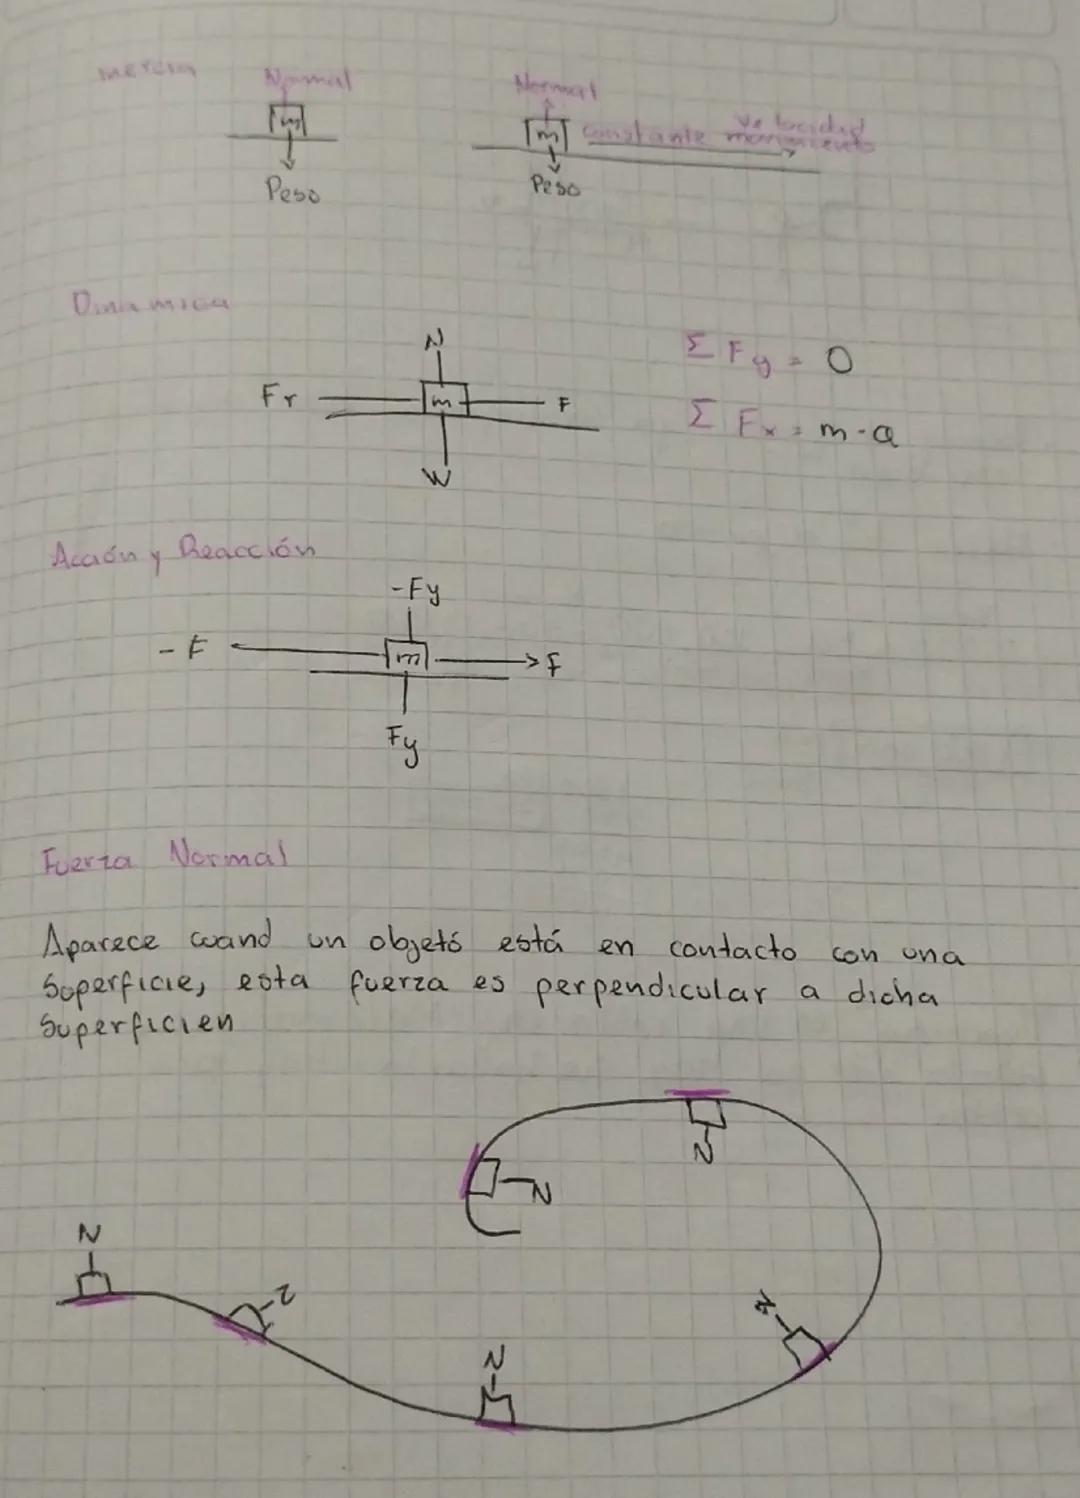 inercia Normal Normal
m m constante velocidad
movimiento
Peso Peso
Dinamica
N Σ Fy = 0
Fr m F
Σ Fx = m·a
W
Acción y Reacción
-Fy
-F m F
Fy
Fuerza Normal
Aparece cuand un objetó está en contacto con una
Superficie, esta fuerza es perpendicular a dicha
Superficien
N
N
N
N
N
N